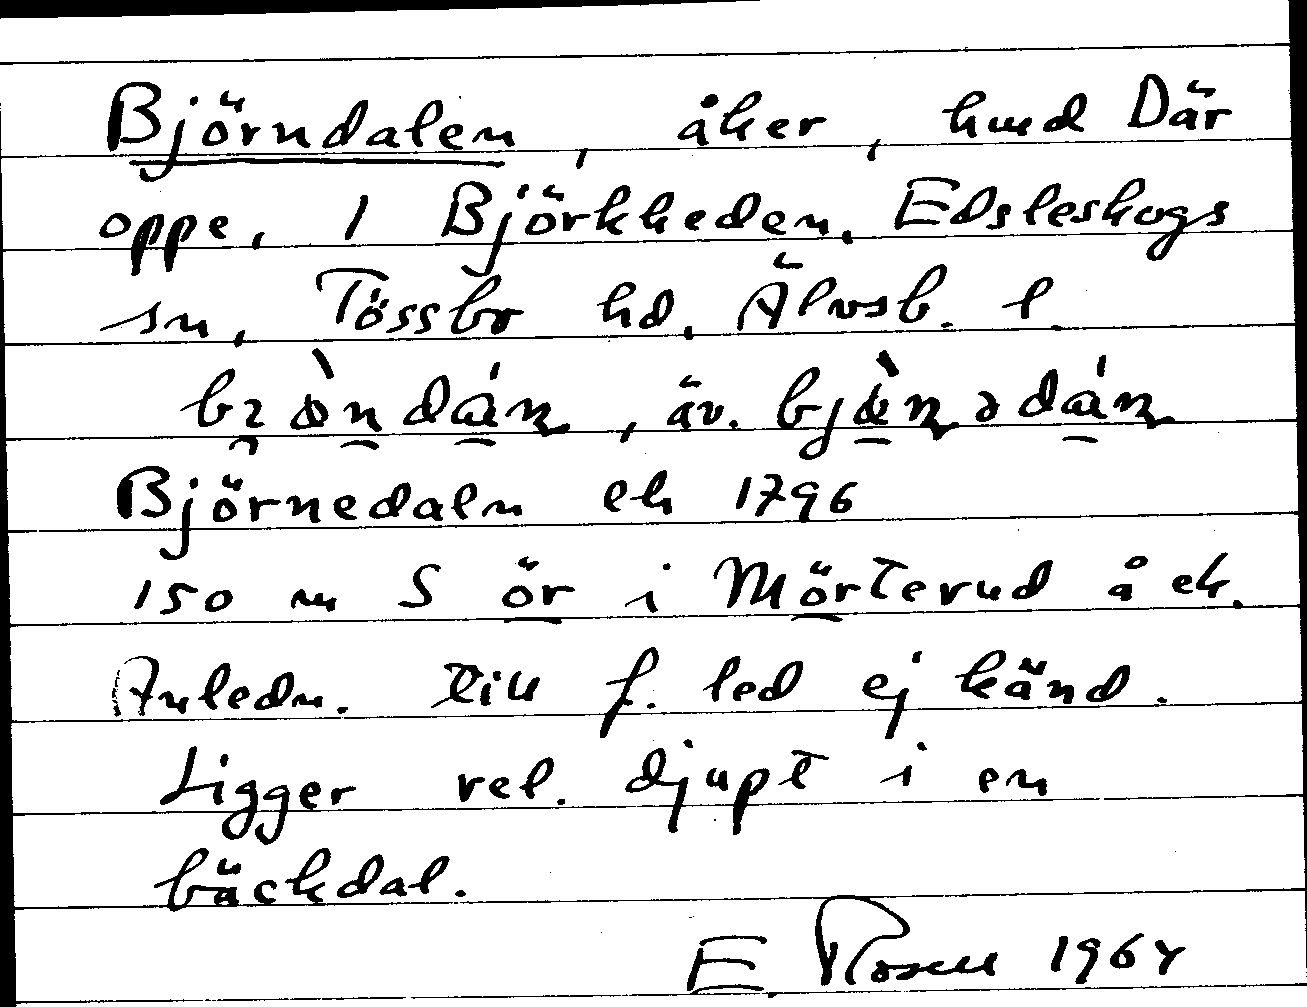 Björndalen, åker, hmd Där
oppe, 1 Björkheden, Edsleskogs
sn, Tössbo hd, Älvsb. l.
Björnedaln ek 1796
150 m S ör i Mörterud å ek.
Anledn. till f. led ej känd.
Ligger rel. djupt i en
bäckdal.
E Rosell 1964